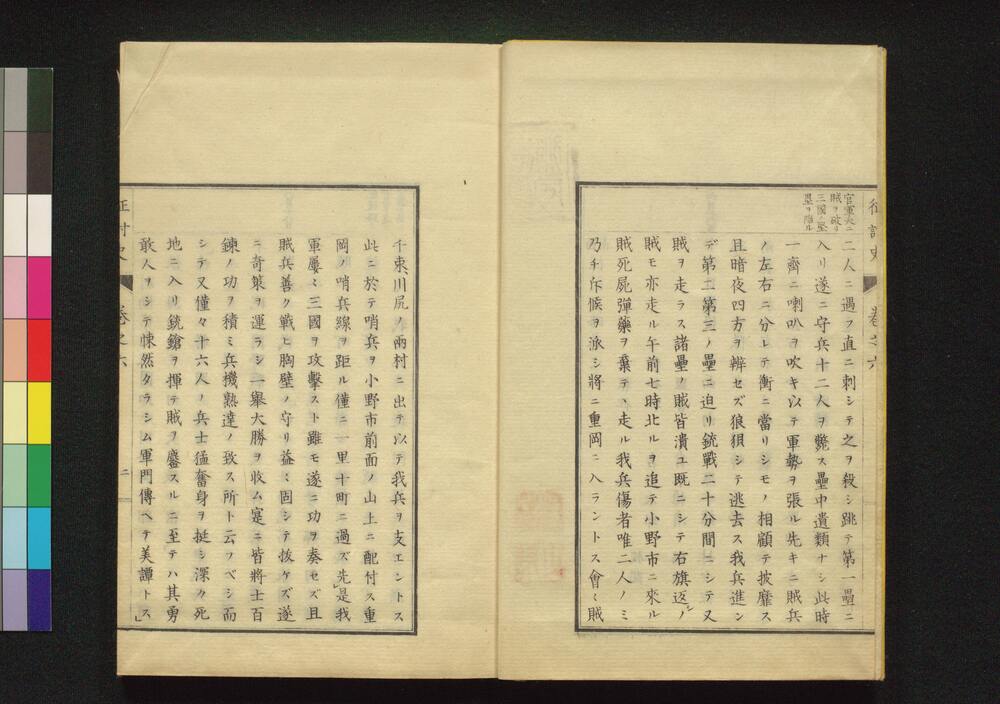 征討史
卷之六
官軍大ニ
賊ヲ破リ
三國ノ壘
壘ヲ陷ル
二人ニ遇フ直ニ刺シテ之ヲ殺シ跳テ第一壘ニ
入リ遂ニ守兵十二人ヲ斃ス壘中遺類ナシ此時
一齊ニ喇叭ヲ吹キ以テ軍勢ヲ張ル先キニ賊兵
ノ左右ニ分レテ衝ニ當リシモノ相顧テ披靡ス
且暗夜四方ヲ辨セズ狼狽シテ逃去ス我兵進ン
デ第二第三ノ壘ニ迫リ銃戰二十分間ニシテ又
賊ヲ走ラス諸壘ノ賊皆潰ユ既ニシテ右旗返シノ
賊モ亦走ル午前七時北ルヲ追テ小野市ニ來ル
賊死屍彈藥ヲ棄テヽ走ル我兵傷者唯二人ノミ
乃チ斥候ヲ派シ將ニ重岡ニ入ラントス會〻賊
千束川尻ノ兩村ニ出テ以テ我兵ヲ支エントス
此ニ於テ哨兵ヲ小野市前面ノ山上ニ配付ス重
岡ノ哨兵線ヲ距ル僅ニ一里十町ニ過ズ先是我
軍屢〻三國ヲ攻擊スト雖モ遂ニ功ヲ奏セズ且
賊兵善ク戰ヒ胸壁ノ守リ益〻固シテ拔ケズ遂
ニ奇策ヲ運ラシ一擧大勝ヲ收ム寔ニ皆將士百
鍊ノ功ヲ積ミ兵機熟達ノ致ス所ト云フベシ而
シテ又僅々十六人ノ兵士猛奮身ヲ挺シ深ク死
地ニ入リ銃鎗ヲ揮テ賊ヲ鏖スルニ至テハ其勇
敢人ヲシテ悚然タラシム軍門傳ヘテ美譚トス」
征討史
卷之六
二